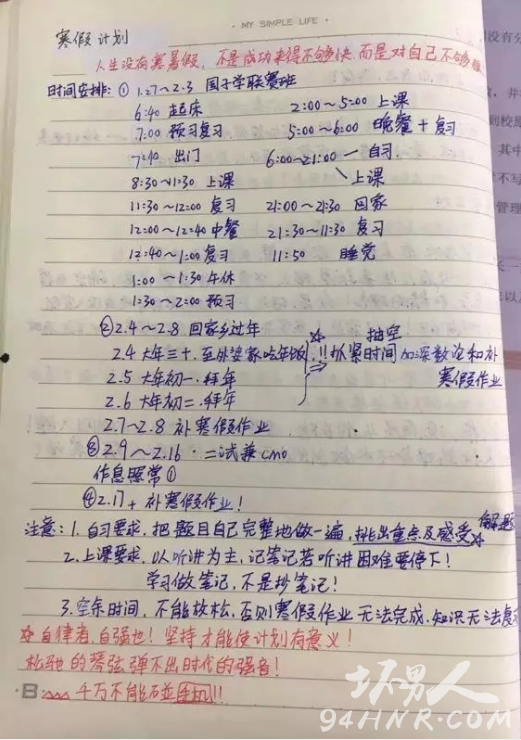 · MY SIMPLE LIFE ·
寒假计划
人生没有寒暑假，不是成功来得不够快，而是对自己不够狠
时间安排：① 1.27～2.3 国子学联赛班
6:40 起床
7:00 预习复习
7:40 出门
8:30～11:30 上课
11:30～12:00 复习
12:00～12:40 中餐
12:40～1:00 复习
1:00～1:30 午休
1:30～2:00 预习
2:00～5:00 上课
5:00～6:00 晚餐+复习
6:00～21:00 自习
上课
21:00～21:30 回家
21:30～11:30 复习
11:50 睡觉
② 2.4～2.8 回家乡过年
2.4 大年三十．至外婆家吃年饭
2.5 大年初一．拜年
2.6 大年初二．拜年
☆ 抽空
!! 抓紧时间加深数论和补
寒假作业
2.7～2.8 补寒假作业
③ 2.9～2.16 ·二试兼CMO
作息照常①
④ 2.17+ 补寒假作业！
注意：1. 自习要求，把题目自己完整地做一遍，挑出重点及感受☆解题
2. 上课要求，以听讲为主，记笔记若听讲困难要停下！
学习做笔记，不是抄笔记！
3. 空余时间，不能放松，否则寒假作业无法完成，知识无法复习
☆ 自律者，自强也！坚持才能使计划有意义！
松驰的琴弦弹不出时代的强音！
日： 千万不能碰手机!!
坏男人
94HNR.COM